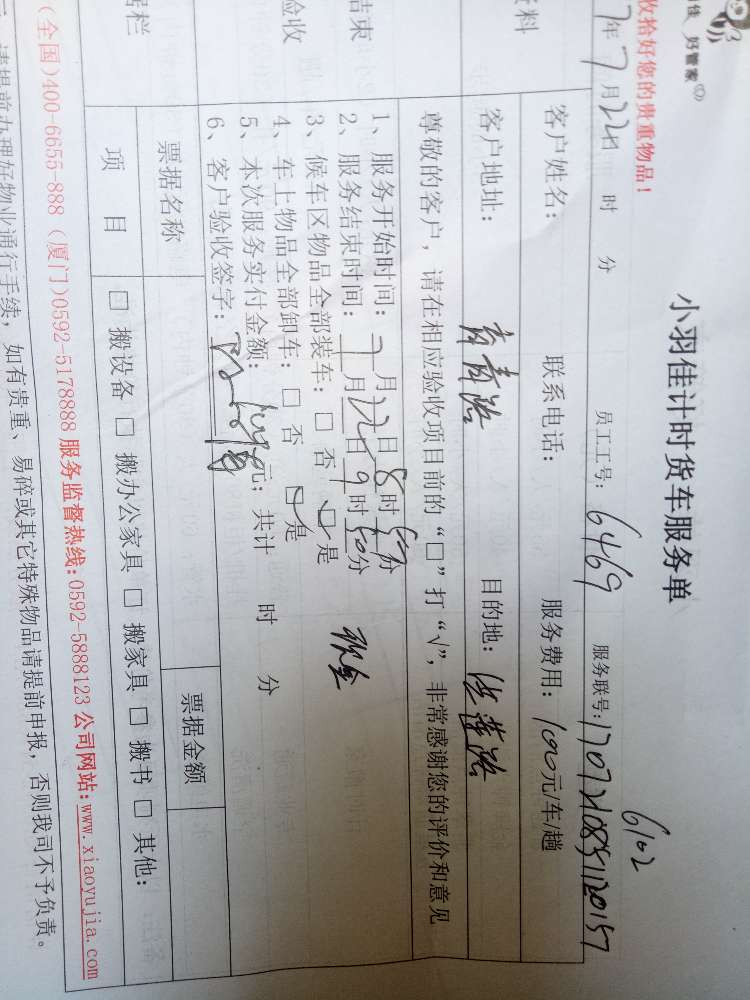 好管家
收拾好您的贵重物品!
小羽佳计时货车服务单
7年7月22日 时 分 员工工号: 6469 服务联号: 17072108551120157
6102
客户姓名: 联系电话: 服务费用: 100元/车/趟
客户地址: 目的地: 莲
尊敬的客户,请在相应验收项目前的“□”打“√”,非常感谢您的评价和意见
1、服务开始时间: 7月22日8时 分
2、服务结束时间: 7月22日9时 分
3、候车区物品全部装车: □否 □是 现金
4、车上物品全部卸车: □否 □是
5、本次服务实付金额: 元; 共计 时 分
6、客户验收签字:
结束
验收
票据名称 票据金额
项 目 □搬设备 □搬办公家具 □搬家具 □搬书 □其他:
(全国)400-6655-888 (厦门)0592-5178888 服务监督热线:0592-5888123 公司网站:www.xiaoyujia.com
请提前办理好物业通行手续, 如有贵重、易碎或其它特殊物品请提前申报, 否则我司不予负责。